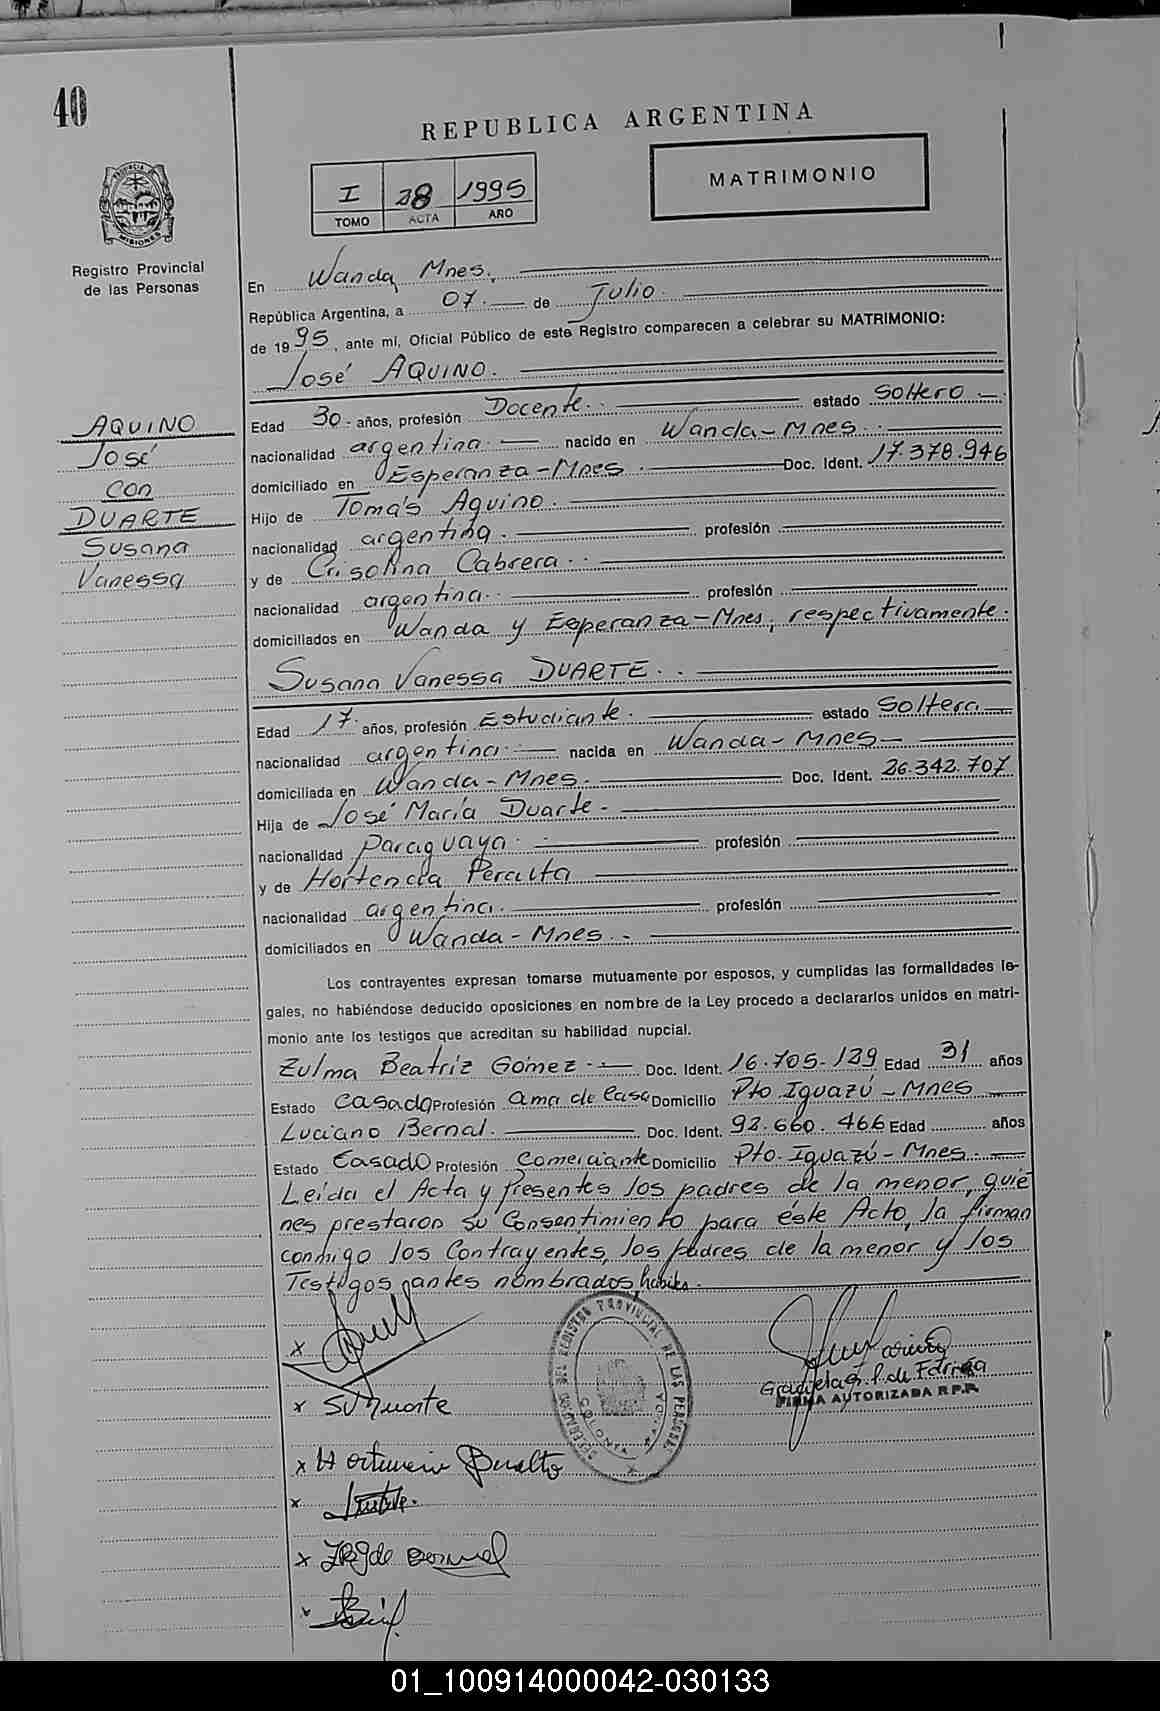 40
REPUBLICA ARGENTINA
MATRIMONIO
I 38 1995
TOMO ACTA AÑO
PROVINCIA DE MISIONES
Registro Provincial
de las Personas
En Wanda, Mnes.
República Argentina, a 07. de Julio.
de 1995, ante mí, Oficial Público de este Registro comparecen a celebrar su MATRIMONIO:
José AQUINO.
AQUINO
José
con
DUARTE
Susana
Vanessa
Edad 30. años, profesión Docente. estado Soltero
nacionalidad argentina. nacido en Wanda-Mnes.
domiciliado en Esperanza-Mnes. Doc. Ident. 17.378.946
Hijo de Tomás Aquino.
nacionalidad argentina. profesión
y de Crisolina Cabrera.
nacionalidad argentina. profesión
domiciliados en Wanda y Esperanza-Mnes, respectivamente.
Susana Vanessa DUARTE.
Edad 17. años, profesión Estudiante. estado Soltera
nacionalidad argentina. nacida en Wanda-Mnes-
domiciliada en Wanda-Mnes. Doc. Ident. 26.342.707
Hija de José María Duarte.
nacionalidad Paraguaya. profesión
y de Hortencia Peralta
nacionalidad argentina. profesión
domiciliados en Wanda-Mnes.
Los contrayentes expresan tomarse mutuamente por esposos, y cumplidas las formalidades le-
gales, no habiéndose deducido oposiciones en nombre de la Ley procedo a declararlos unidos en matri-
monio ante los testigos que acreditan su habilidad nupcial.
Zulma Beatriz Gómez Doc. Ident. 16.705.129 Edad 31 años
Estado Casada Profesión ama de Casa Domicilio Pto. Iguazú-Mnes
Luciano Bernal. Doc. Ident. 92.660.466 Edad años
Estado Casado Profesión Comerciante Domicilio Pto. Iguazú-Mnes.
Leída el Acta y Presentes los padres de la menor, quié
nes prestaron su Consentimiento para éste Acto, la firman
conmigo los Contrayentes, los padres de la menor y los
Testigos antes nombrados
x
x SVDuarte
x Hortencia Peralta
x
x ZBGde Bernal
x
DELEGACION DEL REGISTRO PROVINCIAL DE LAS PERSONAS
COLONIA WANDA
Graciela G. P. de Farina
FIRMA AUTORIZADA R.P.P.
01_100914000042-030133